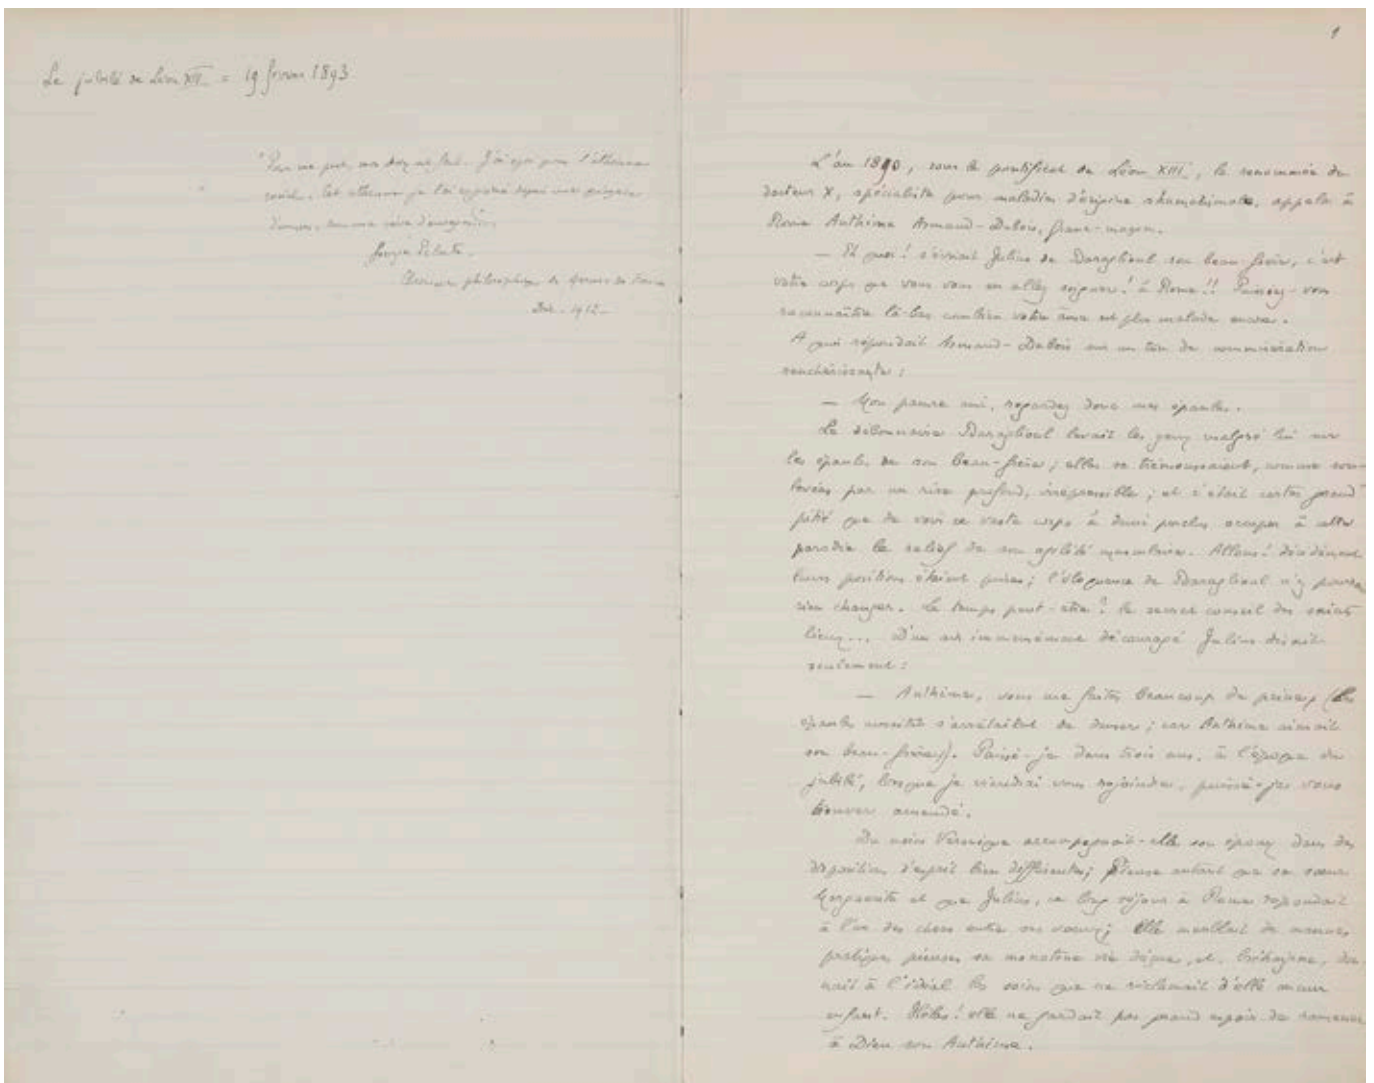 Le jubilé de Léon XIII = 19 février 1893
"Pour ma part, mon choix est fait. J'ai opté pour l'athéisme
social. Cet athéisme je l'ai exprimé depuis une quinzaine
d'années, dans une série d'ouvrages"..
Georges Palante.
Chronique philosophique du Mercure de France
Déc. 1912 -
1
L'an 1890, sous le pontificat de Léon XIII, la renommée du
docteur X, spécialiste pour maladies d'origine rhumatismale, appela à
Rome Anthime Armand-Dubois, franc-maçon.
— Et quoi! s'écriait Julius de Baraglioul son beau-frère, c'est
votre corps que vous vous en allez soigner! à Rome!! Puissiez-vous
reconnaître là-bas combien votre âme est plus malade encore.
A quoi répondait Armand-Dubois sur un ton de commisération
renchérissante:
— Mon pauvre ami, regardez donc mes épaules.
Le débonnaire Baraglioul levait les yeux malgré lui sur
les épaules de son beau-frère; elles se trémoussaient, comme sou-
levées par un rire profond, irrépressible; et c'était certes grand'
pitié que de voir ce vaste corps à demi perclus occuper à cette
parodie le relief de son agilité musculaire. Allons! décidément
leurs positions étaient prises; l'éloquence de Baraglioul n'y pourrait
rien changer. Le temps peut-être? le secret conseil des saints
lieux... D'un air immensément découragé Julius disait
seulement:
— Anthime, vous me faites beaucoup de peine (les
épaules aussitôt s'arrêtaient de danser; car Anthime aimait
son beau-frère). Puissé-je dans trois ans, à l'époque du
jubilé, lorsque je viendrai vous rejoindre, puissé-je vous
trouver amendé.
Du moins Véronique accompagnait-elle son époux dans des
dispositions d'esprit bien différentes; pieuse autant que sa sœur
Marguerite et que Julius, ce long séjour à Rome répondait
à l'un des chers entre ses vœux; elle meublait de menues
pratiques pieuses sa monotone vie déçue, et, bréhaigne, don-
nait à l'idéal les soins que ne réclamait d'elle aucun
enfant. Hélas! elle ne gardait pas grand espoir de ramener
à Dieu son Anthime.